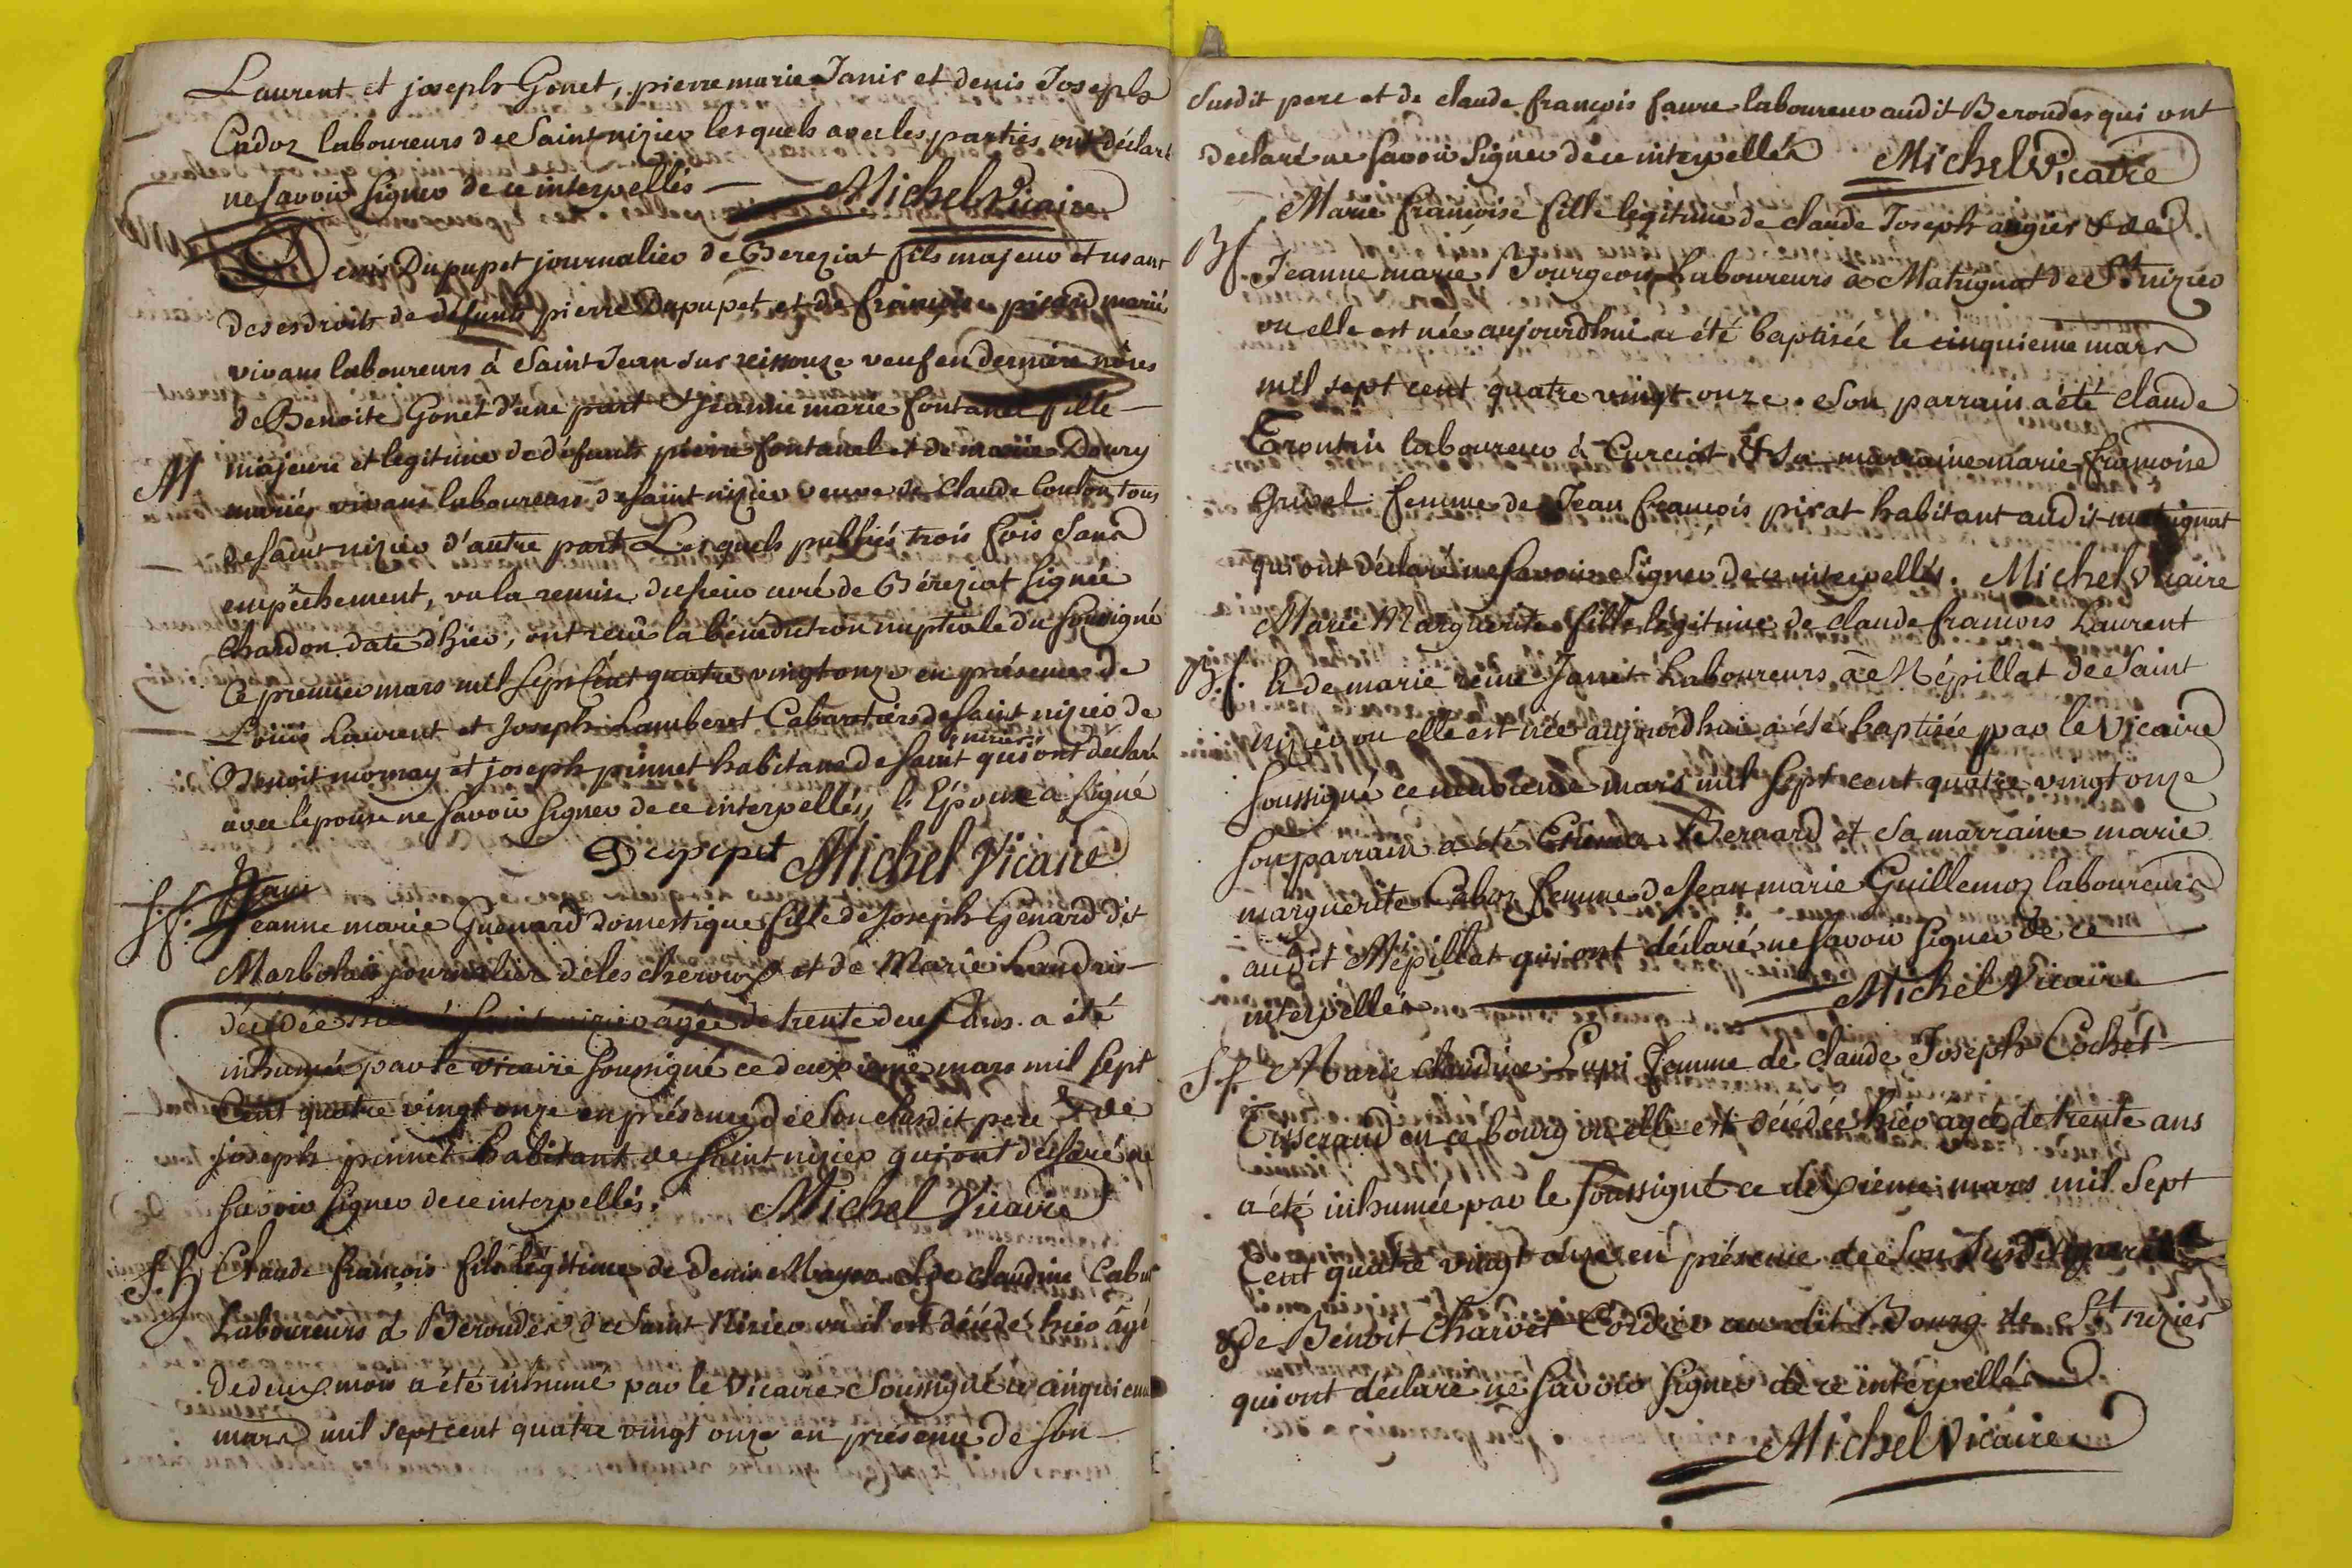 Laurent et joseph Gonet, pierre marie Janis et denis Joseph
Cadoz laboureurs de Saint nizier lesquels avec les parties ont déclaré
ne Savoir Signer de ce interpellés Michel Vicaire
Denis Dupupet journalier de Bereziat fils majeur et usant
de ses droits de défunts pierre Dupupet et de françoise picard mariés
vivans laboureurs à Saint Jean sur reissouze veuf en derniere nôces
de Benoite Gonet d'une part & jeanne marie fontanel fille
M majeure et legitime de défunts pierre fontanel et de marie Doury
mariés vivans laboureurs de Saint nizier veuve de Claude Coulon tous
de Saint nizier d'autre part Lesquels publiés trois fois Sans
empêchement, vu la remise du sieur curé de Béreziat Signée
Chardon date d'hier, ont reçu la bénédiction nuptiale du Soussigné
Ce premier mars mil Sept Cent quatre vingt onze en présence de
Louis Laurent et Joseph Lamberet Cabaretiers de Saint nizier de
nizier
Benoit mornay et joseph pinnet habitans de Saint qui ont declaré
avec l'épouse ne Savoir Signer de ce interpellés, l'Epoux a Signé
Depepet Michel Vicaire
Jane
S.f. Jeanne marie Guenard domestique fille de Joseph Genard dit
Marbolais journalier de les cheroux et de Marie Landris
décédée hier à Saint nizier agée de trente deux ans a été
inhumée par le vicaire Soussigné ce deuxieme mars mil Sept
Cent quatre vingt onze en présence de Son Susdit pere & de
joseph pinnet habitant de Saint nizier qui ont déclaré ne
Savoir Signer de ce interpellés. Michel Vicaire
S.f. Claude françois fils légitime de Denis Mayer & de Claudine Cabut
Laboureurs à Béroudes de Saint Nizier ou il est décédé hier âgé
De deux mois a été inhumé par le Vicaire Soussigné ce cinquieme
mars mil Sept cent quatre vingt onze en présence de Son
Susdit pere et de claude françois faure laboureur audit Beroudes qui ont
declaré ne Savoir Signer de ce interpellés Michel Vicaire
Marie françoise fille legitime de claude Joseph augier & de
B.f. Jeanne marie Bourgeois Laboureurs à Matrignat de St. nizier
ou elle est née aujourdhui a été baptisée le cinquieme mars
mil sept cent quatre vingt onze. Son parrain a été claude
Trontin laboureur à Curciat & Sa marraine marie françoise
Grivel femme de Jean françois pirat habitant audit matrignat
qui ont déclaré ne Savoir Signer de ce interpellés. Michel Vicaire
Marie Marguerite fille légitime de claude francois Laurent
B.f. & de marie reine Janet Laboureurs à Népillat de Saint
nizier ou elle est née aujourdhui a été baptisée par le Vicaire
Soussigné ce neuvieme mars mil Sept cent quatre vingt onze
Son parrain a été Etienne Bernard et Sa marraine marie
marguerite Caboz femme de Jean marie Guillemoz laboureurs
audit Népillat qui ont déclaré ne Savoir Signer de ce
interpellés Michel Vicaire
S.f. Marie claudine Lupi femme de claude Joseph Cochet
Tisserand en ce bourg ou elle est décédée hier agée de trente ans
a été inhumée par le Soussigné ce dixieme mars mil Sept
Cent quatre vingt onze en présence de Son Susdit
& de Benoit Charvet Cordier au dit Bourg de St nizier
qui ont déclaré ne Savoir Signer de ce interpellés
Michel Vicaire